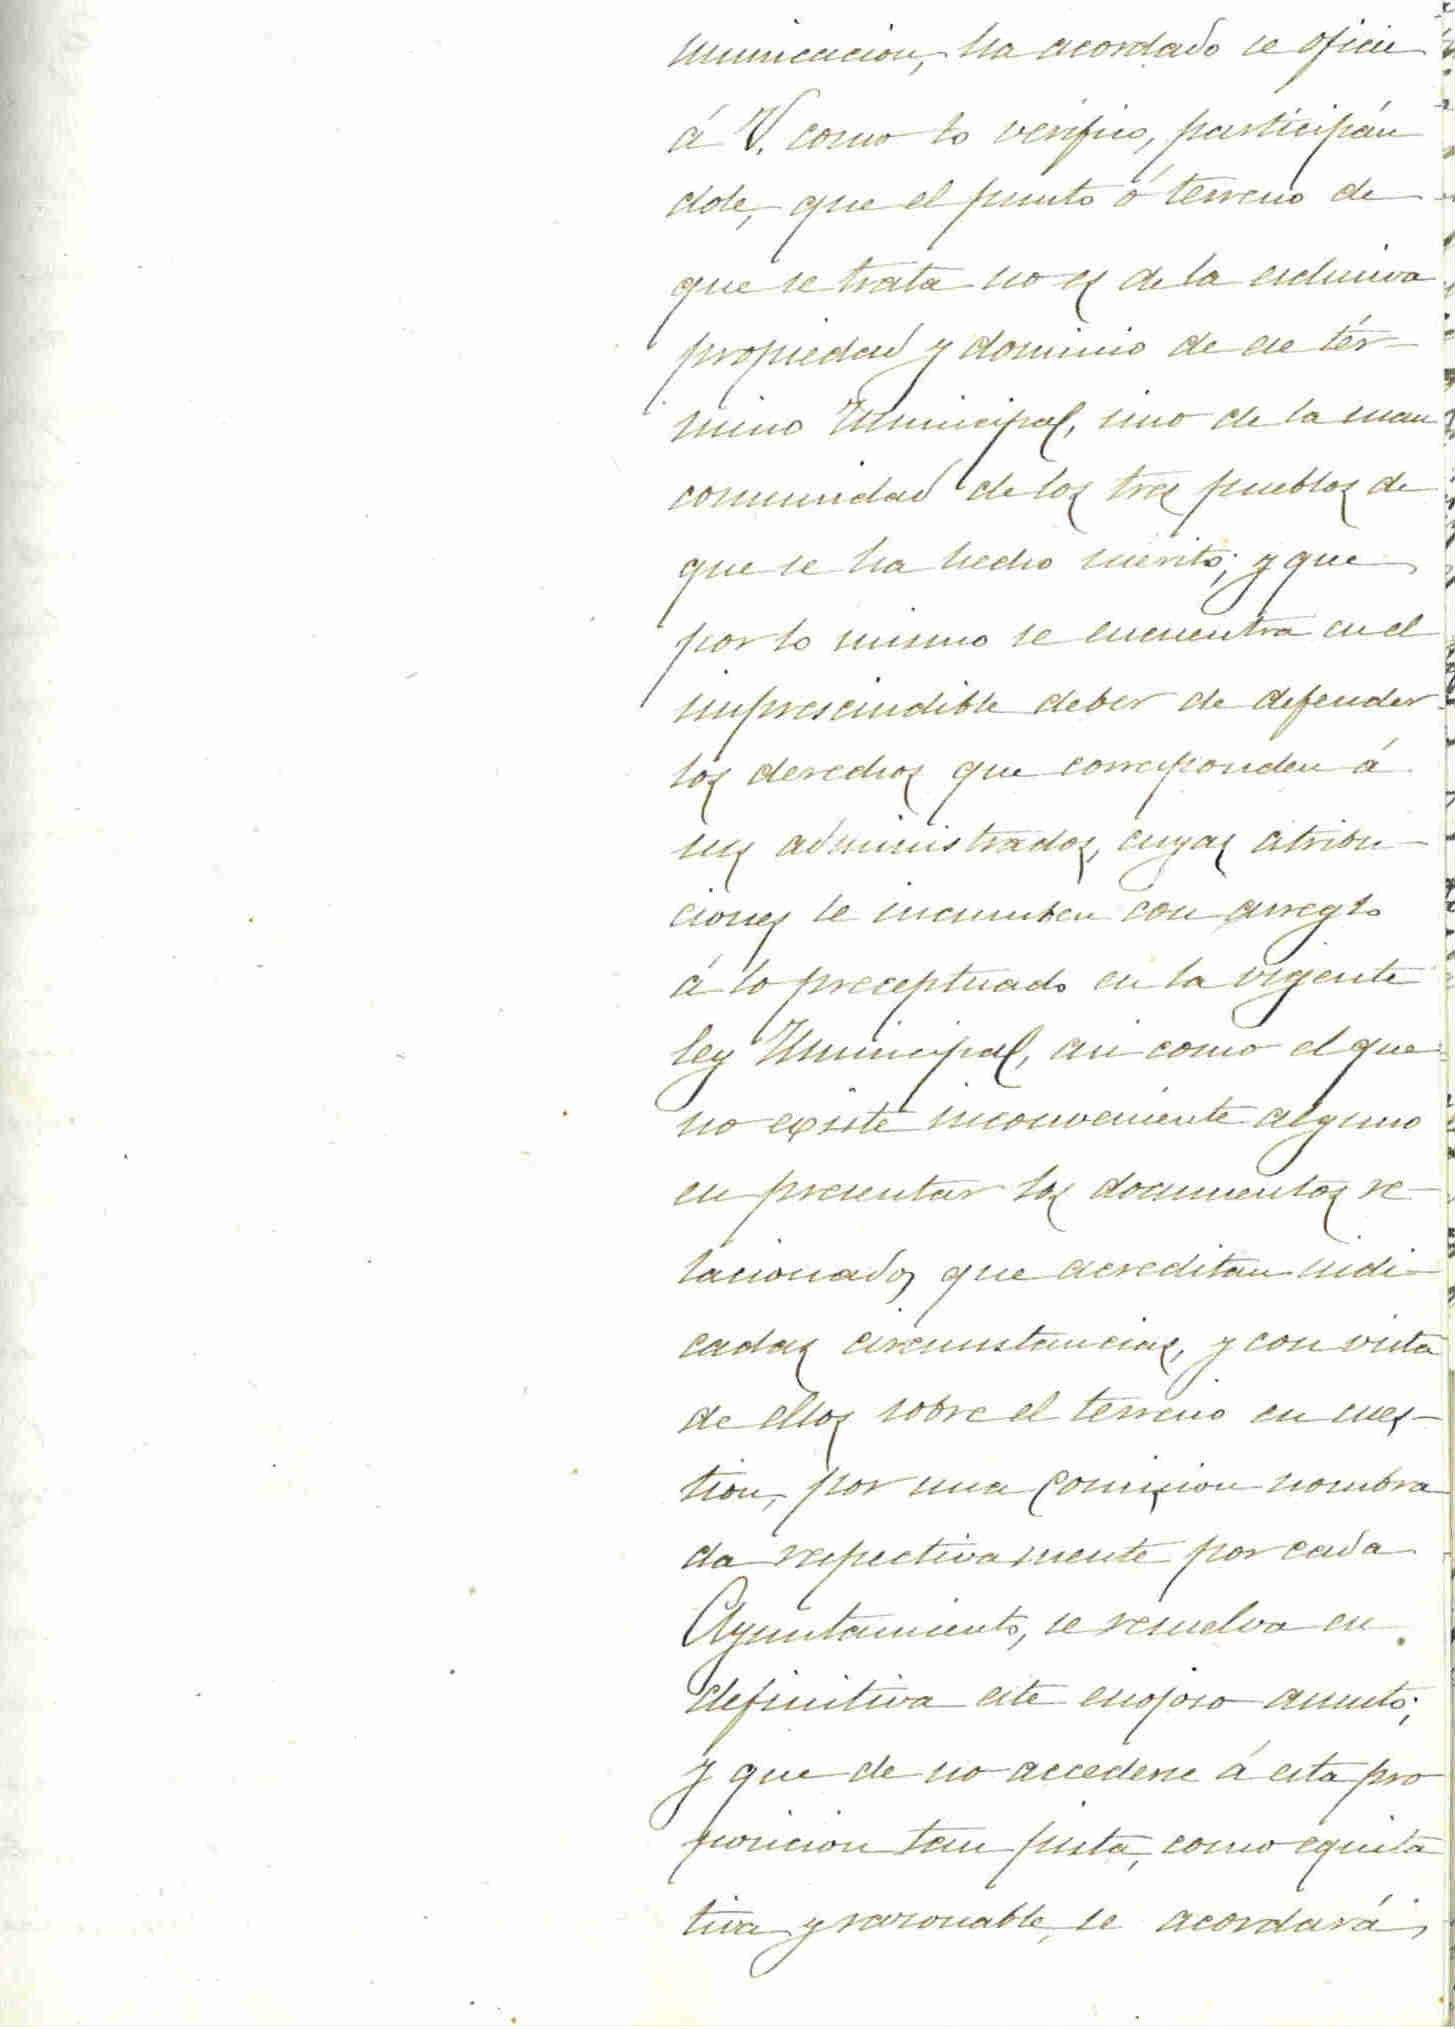 municacion, ha acordado se oficie
á V. como lo verifico, participán
dole, que el punto ó terreno de
que se trata no es de la esclusiva
propiedad y dominio de ese tér-
mino Municipal, sino de la man
comunidad de los tres pueblos de
que se ha hecho mérito; y que
por lo mismo se encuentra en el
imprescindible deber de defender
los derechos que corresponden á
sus administrados, cuyas atribu-
ciones le incumben con arreglo
á lo preceptuado en la vigente
ley Municipal, asi como el que
no existe inconveniente alguno
en presentar los documentos re-
lacionados que acreditan indi-
cadas circunstancias, y con vista
de ellos sobre el terreno en cues-
tion, por una Comision nombra
da respectivamente por cada
Ayuntamiento, se resuelva en
definitiva este enojoso asunto;
y que de no accederse á esta pro
posicion tan justa, como equita
tiva y razonable, se acordará,